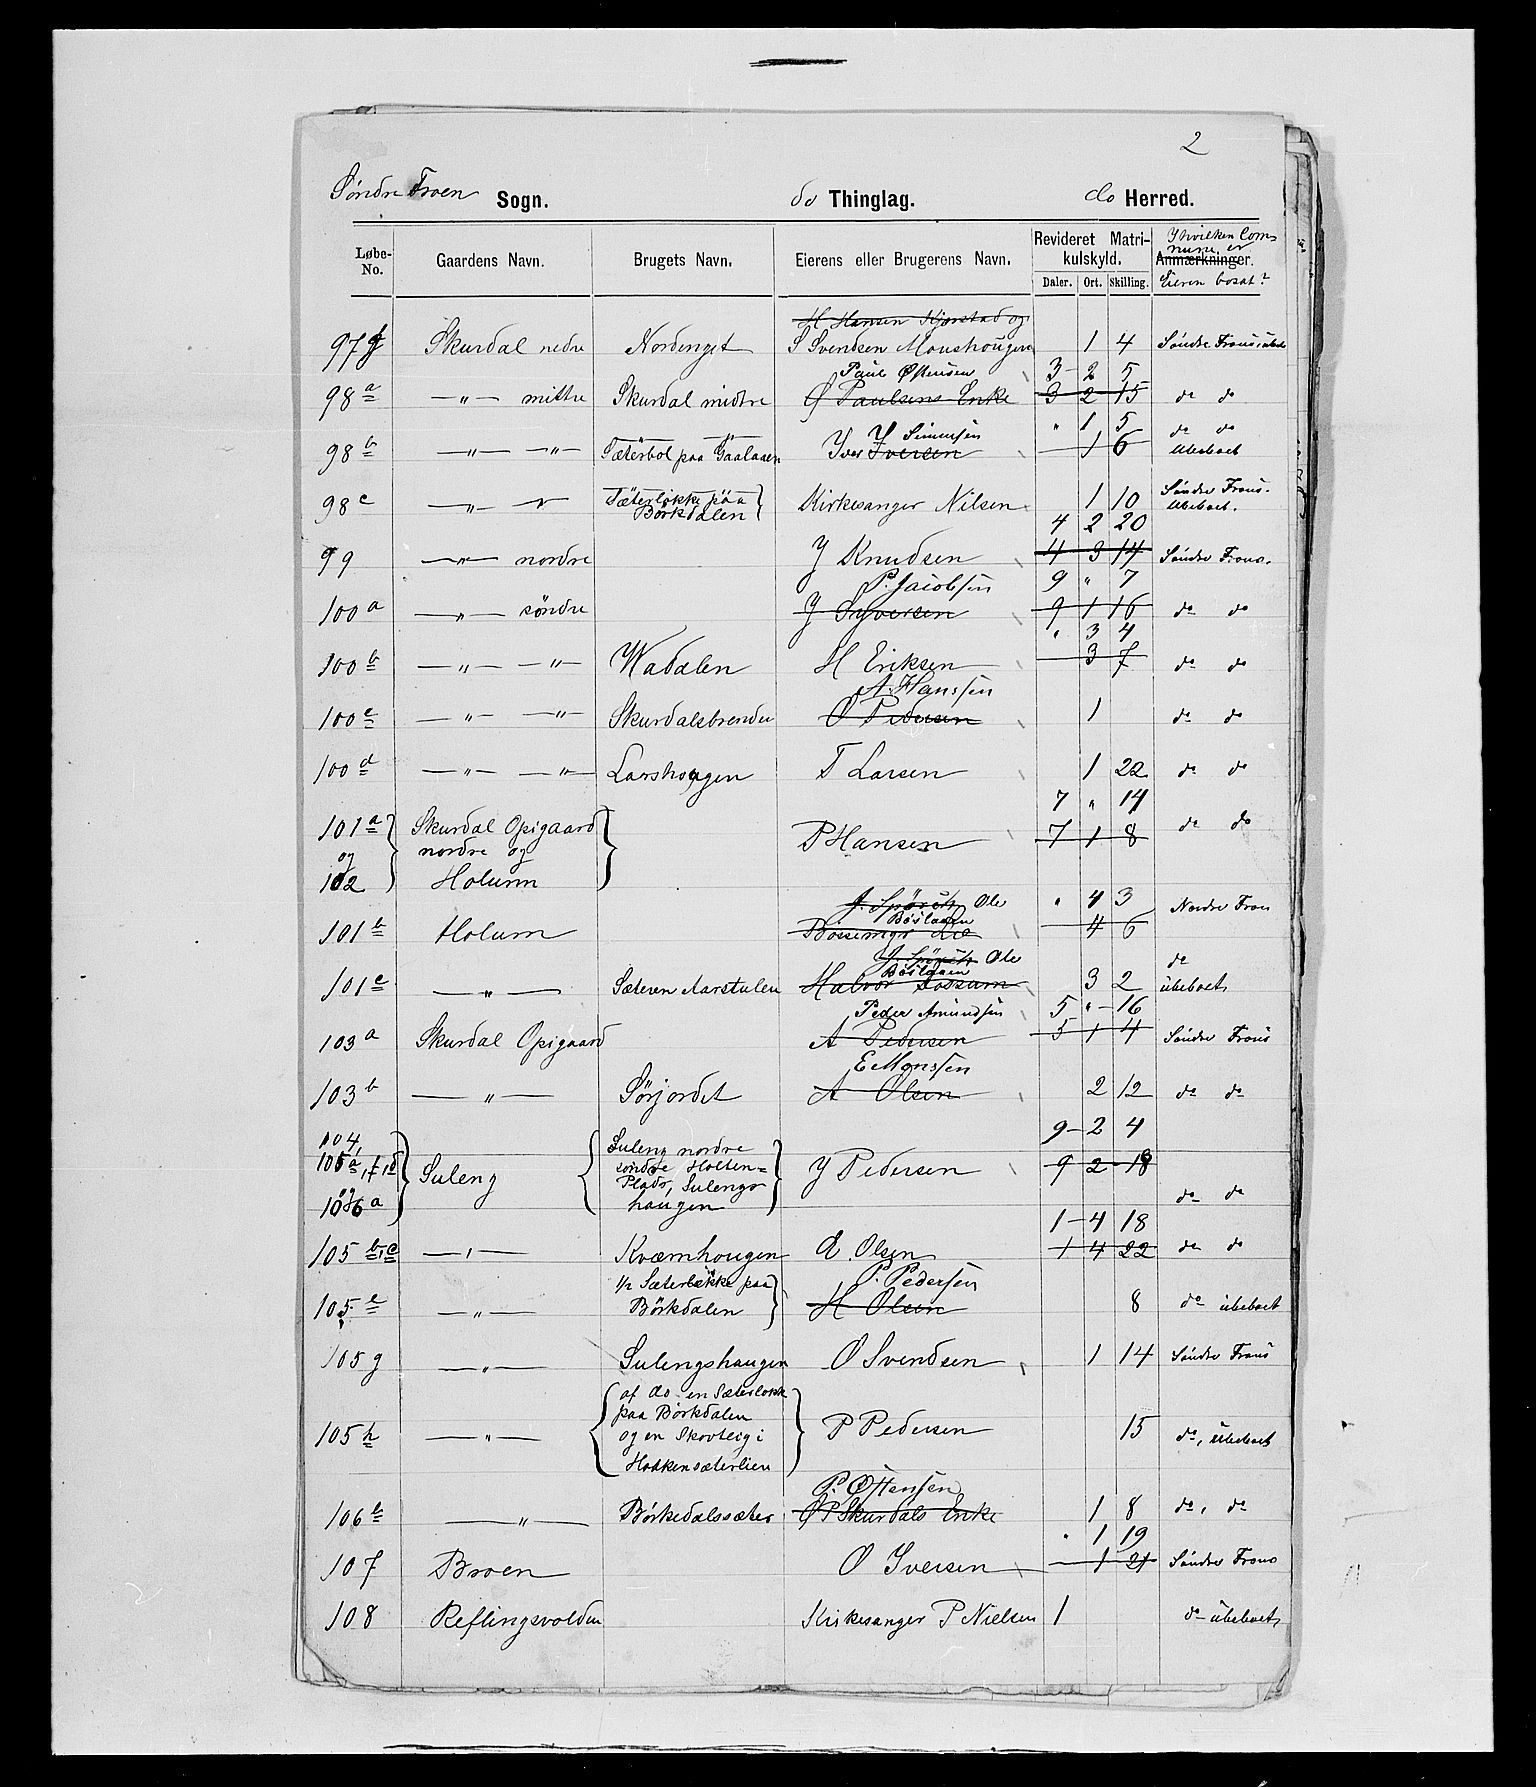 2
Søndre Froen Sogn. do Thinglag. do Herred.
Løbe-No. Gaardens Navn. Brugets Navn. Eierens eller Brugerens Navn. Revideret Matrikulskyld. Anmærkninger.
I hvilken Commune er Eieren bosat?
Daler. Ort. Skilling.
H Hansen Kjorstad og
97 f Skurdal nedre Nordenget S Svendsen Monshougen 1 4 Søndre Frons, ubeb
Paul Østensen 3 - 2 5
98 a — " — mittre Skurdal midtre Ø Paulsens Enke 3 2 15 do do
Y Simensen " 1 5 do do
98 b — " — — " — Sæterbol paa Gaalaaen Iver Iversen 1 6 ubeboet
98 c — " — Sæterløkke paa Børkdalen Kirkesanger Nilsen 1 10 Søndre Frons. Ubeboet.
4 2 20
99 — " — nordre J Knudsen 4 3 14 Søndre Frons.
P. Jacobsen 9 " 7
100 a — " — søndre J Syversen 9 1 16 do do
" 3 4
100 b — " — — " — Wadalen H Eriksen 3 7 do do
A. Hanssen
100 c — " — — " — Skurdalsbrenden O Pedersen 1 do do
100 d — " — — " — Larshougen T Larsen 1 22 do do
7 " 14
101 a og 102 Skurdal Opigaard nordre og Holum P Hansen 7 1 8 do do
Ole " 4 3 Nordre Fron
101 b Holum 4 6
Ole do
101 c — " — Sæteren Aarstulen Halvor Fossum 3 2 ubeboet
Peder Amundsen 5 " - 16
103 a Skurdal Opigaard A Pedersen 5 1 4 Søndre Frons
E Monssen
103 b — " — Sørjordet A Olsen 2 12 do do
9 - 2 4
104, 105 a, f, d og 106 a Suleng Suleng nordre søndre Holten= Plads, Sulengshaugen J Pedersen 9 2 - 18 do do
1 - 4 18
105 b, c — " — Kværnhougen E. Olsen 1 4 22 do do
P. Pedersen
105 e — " — 1/2 Sæterløkke paa Børkdalen H Olsen 8 do ubeboet
105 g — " — Sulengshaugen O Svendsen 1 14 Søndre Frons
105 h — " — af do en Sæterløkke paa Børkdalen og en Skovteig i Hokkensæterlien P Pedersen 15 do, ubeboet
P. Østensen
106 b — " — Børkedalssæter Ø P Skurdals Enke 1 8 do, do
" 1 19
107 Broen O Iversen 1 21 Søndre Frons
108 Reflingsvolden Kirkesanger P Nielsen 1 do ubeboet